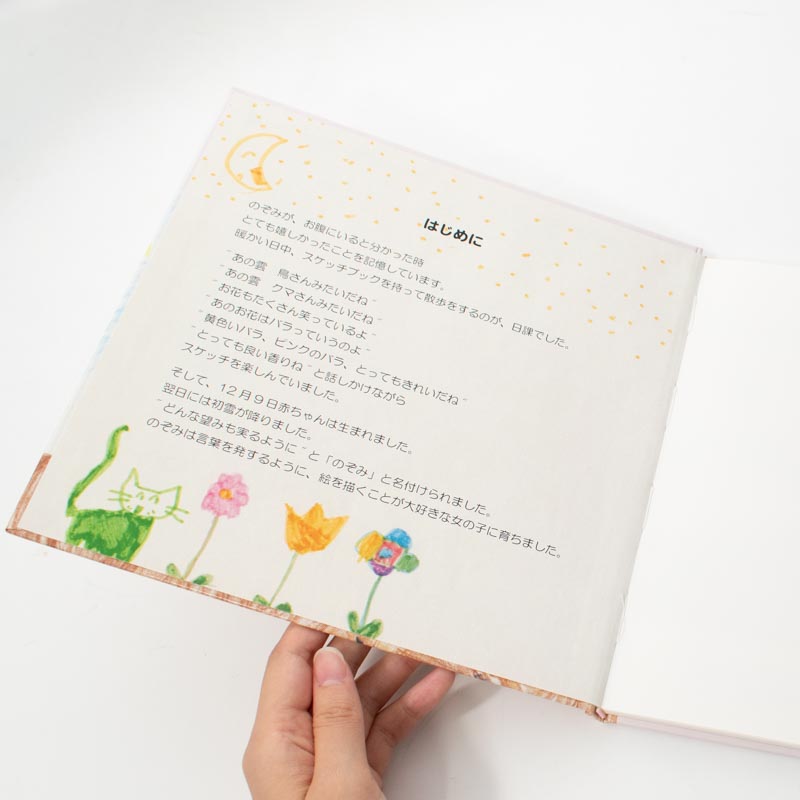 はじめに
のぞみが、お腹にいると分かった時
とても嬉しかったことを記憶しています。
暖かい日中、スケッチブックを持って散歩をするのが、日課でした。
〝あの雲　鳥さんみたいだね〟
〝あの雲　クマさんみたいだね〟
〝お花もたくさん笑っているよ〟
〝あのお花はバラっていうのよ〟
〝黄色いバラ、ピンクのバラ、とってもきれいだね〟
〝とっても良い香りね〟と話しかけながら
スケッチを楽しんでいました。
そして、１２月９日赤ちゃんは生まれました。
翌日には初雪が降りました。
〝どんな望みも実るように〟と「のぞみ」と名付けられました。
のぞみは言葉を発するように、絵を描くことが大好きな女の子に育ちました。